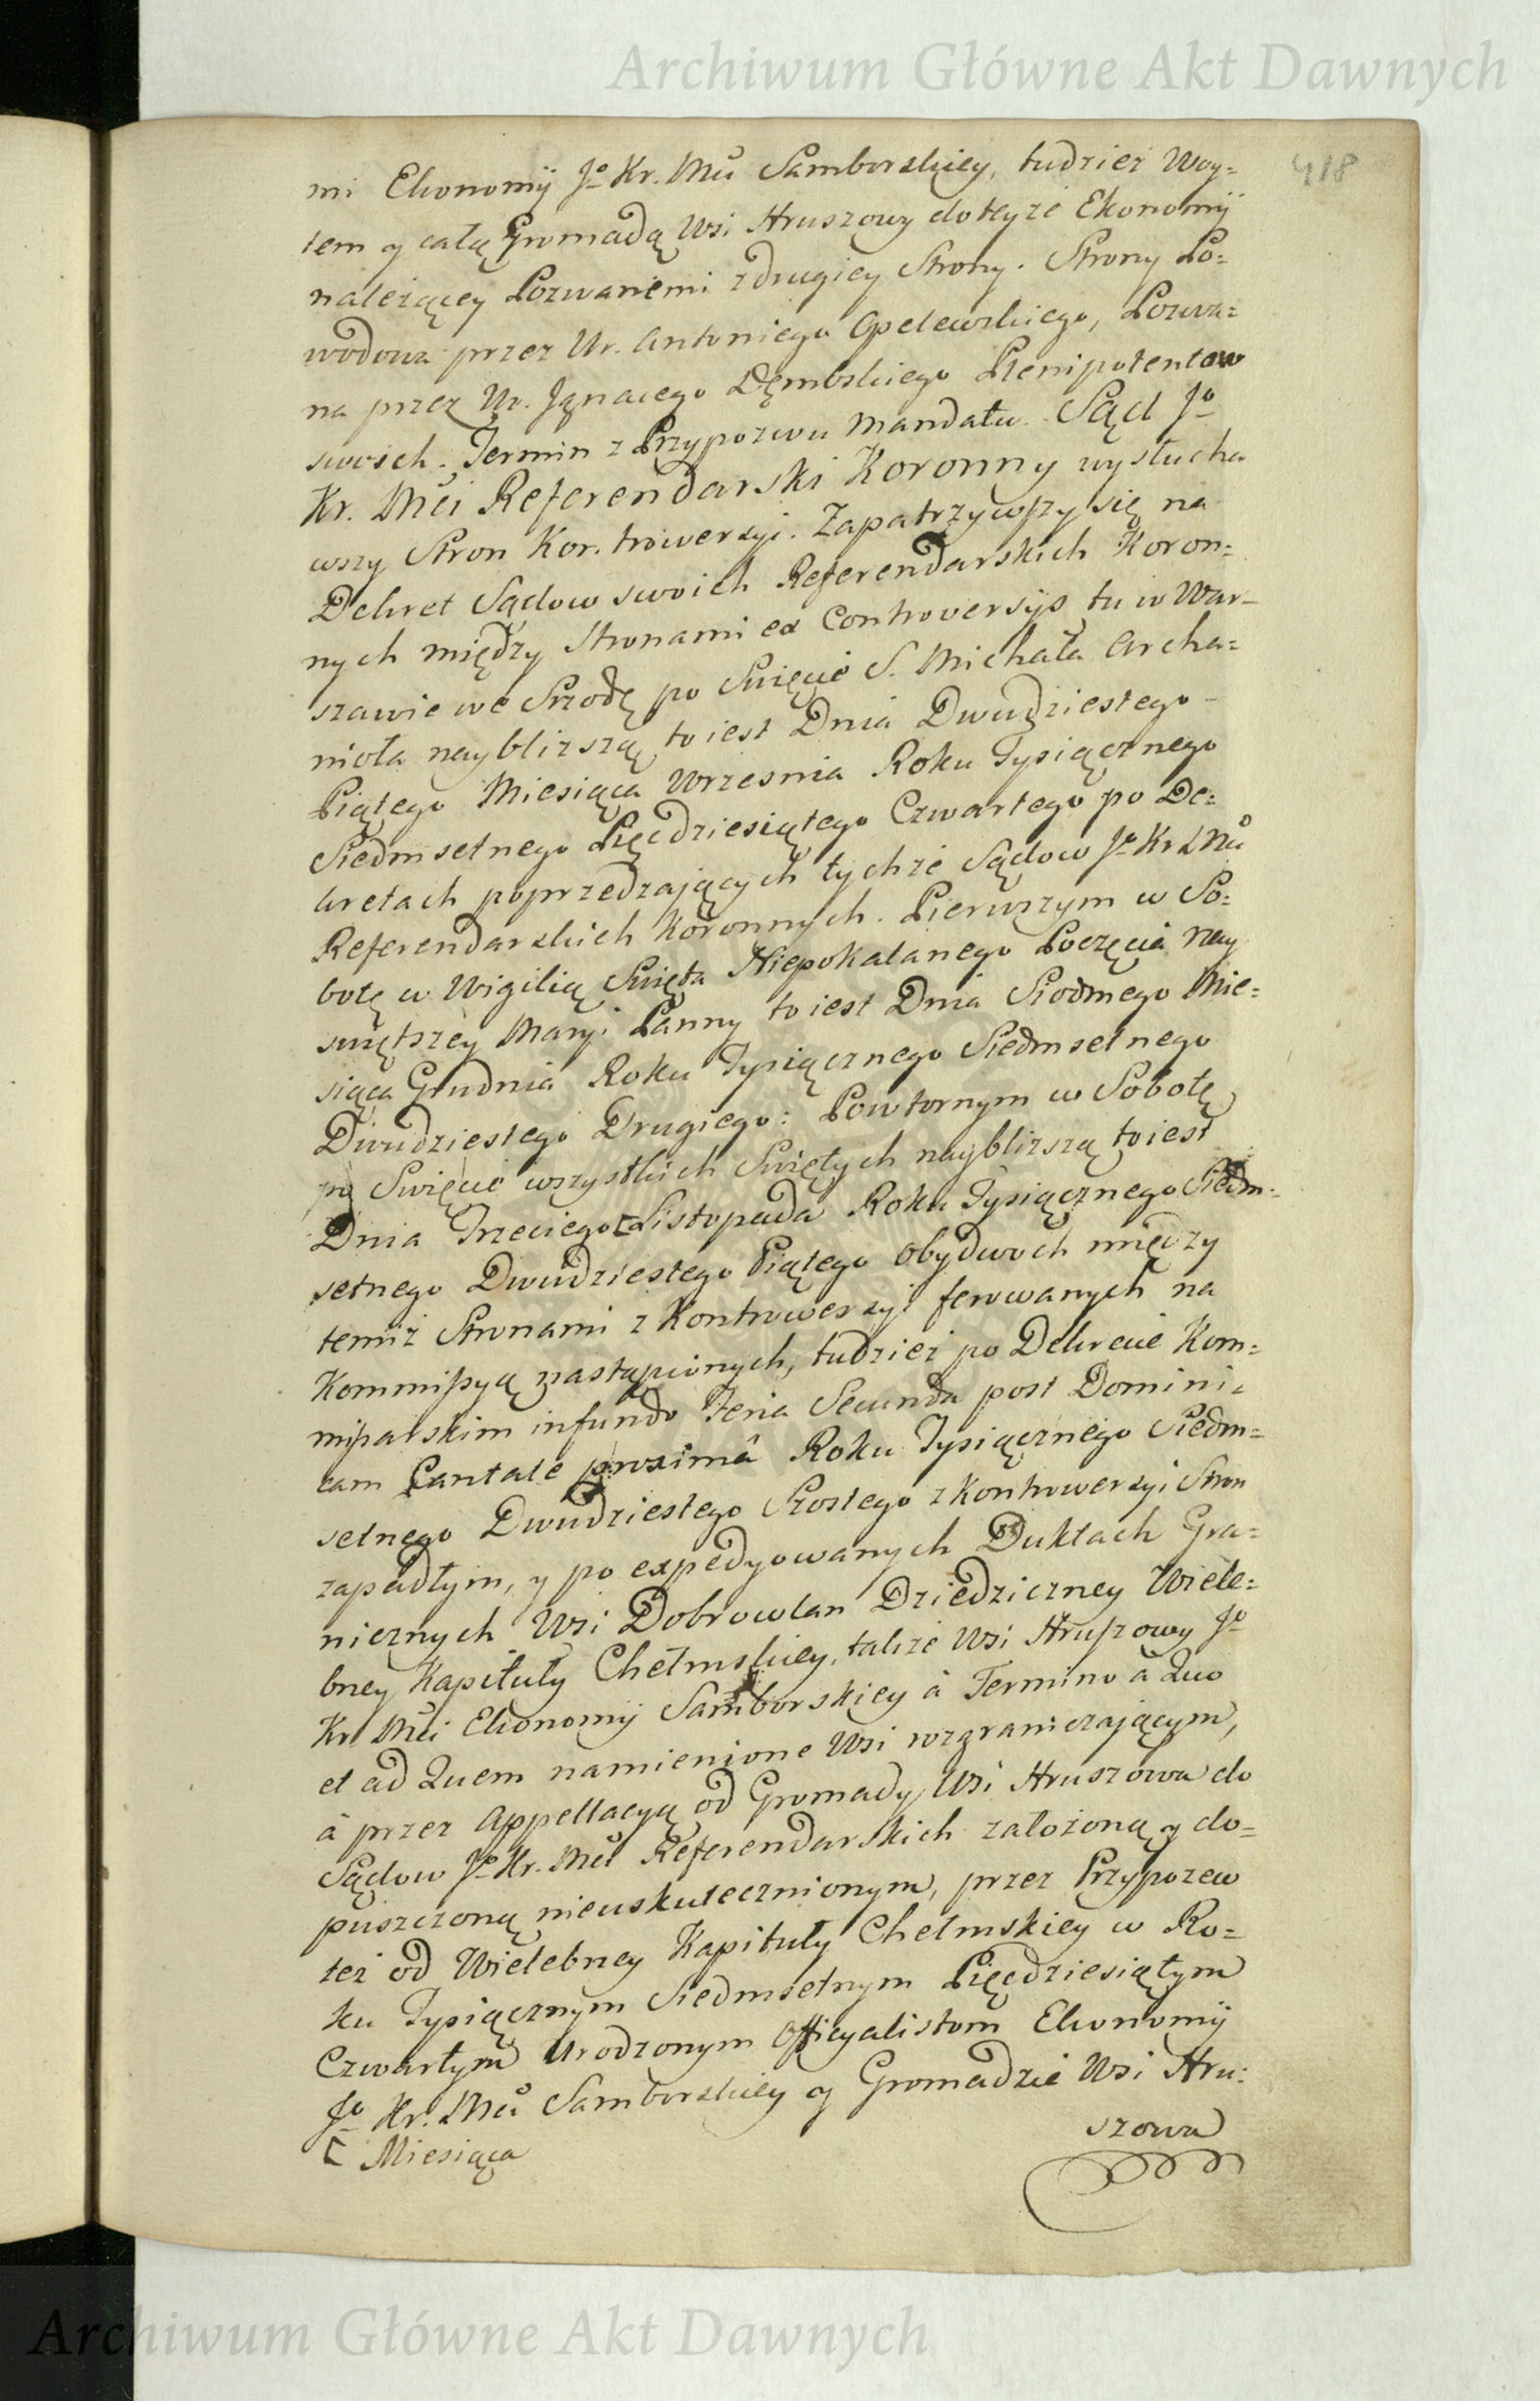 Archiwum Główne Akt Dawnych
418
mi Ekonomij Jo Kr. Mci Samborskiey, tudzież Woy=
tem y całą Gromadą Wsi Hruszowy do teyże Ekonomij
należącey Pozwanemi z drugiey Strony. Strony Po=
wodowa przez Ur. Antoniego Opelewskiego, Pozwa=
na przez Ur. Jgnacego Dęmbskiego Plenipotentow
swoich. Termin z Przypozwu Mandatu. Sąd Jo
Kr. Mci Referendarski Koronny wysłucha
wszy Stron Kontrowersyi. Zapatrzywszy się na
Dekret Sądow swoich Referendarskich Koron=
nych między Stronami ex Controversijs tu w War=
szawie we Srzodę po Swięcie S. Michała Archa=
nioła naybliższą to iest Dnia Dwudziestego
Piątego Miesiąca Wrzesnia Roku Tysiącznego
Siedmsetnego Pięcdziesiątego Czwartego po De=
kretach poprzedzaiących tychże Sądow Jo Kr Mci
Referendarskich Koronnych. Pierwszym w So=
botę w Wigilią Swięta Niepokalanego Poczęcia Nay
swiętszey Maryi Panny to iest Dnia Siodmego Mie=
siąca Grudnia Roku Tysiącznego Siedmsetnego
Dwudziestego Drugiego: Powtornym w Sobotę
po Swięcie wszystkich Swiętych naybliższą to iest
Dnia Trzeciego [ Listopada Roku Tysiącznego Siedm=
setnego Dwudziestego Piątego obydwoch między
temiż Stronami z Kontrowersyi ferowanych na
Kommissyą zastąpionych, tudzież po Dekrecie Kom=
missarskim in fundo Feria Secunda post Domini=
cam Cantate proximâ Roku Tysiącznego Siedm=
setnego Dwudziestego Szostego z Kontrowersyi Stron
zapadłym, y po expedyowanych Duktach Gra=
nicznych Wsi Dobrowlan Dziedziczney Wiele=
bney Kapituły Chełmskiey, także Wsi Hruszowy Jo
Kr Mci Ekonomij Samborskiey à Termino à Quo
et ad Quem namienione Wsi rozgraniczaiącym,
à przez Appellacyą od Gromady Wsi Hruszowa do
Sądow Jo Kr. Mci Referendarskich założoną y do=
puszczoną nieuskutecznionym, przez Przypozew
też od Wielebney Kapituły Chełmskiey w Ro=
ku Tysiącznym Siedmsetnym Pięcdziesiątym
Czwartym Urodzonym Officyalistom Ekonomij
Jo Kr. Mci Samborskiey y Gromadzie Wsi Hru=
szowa
[ Miesiąca
Archiwum Główne Akt Dawnych